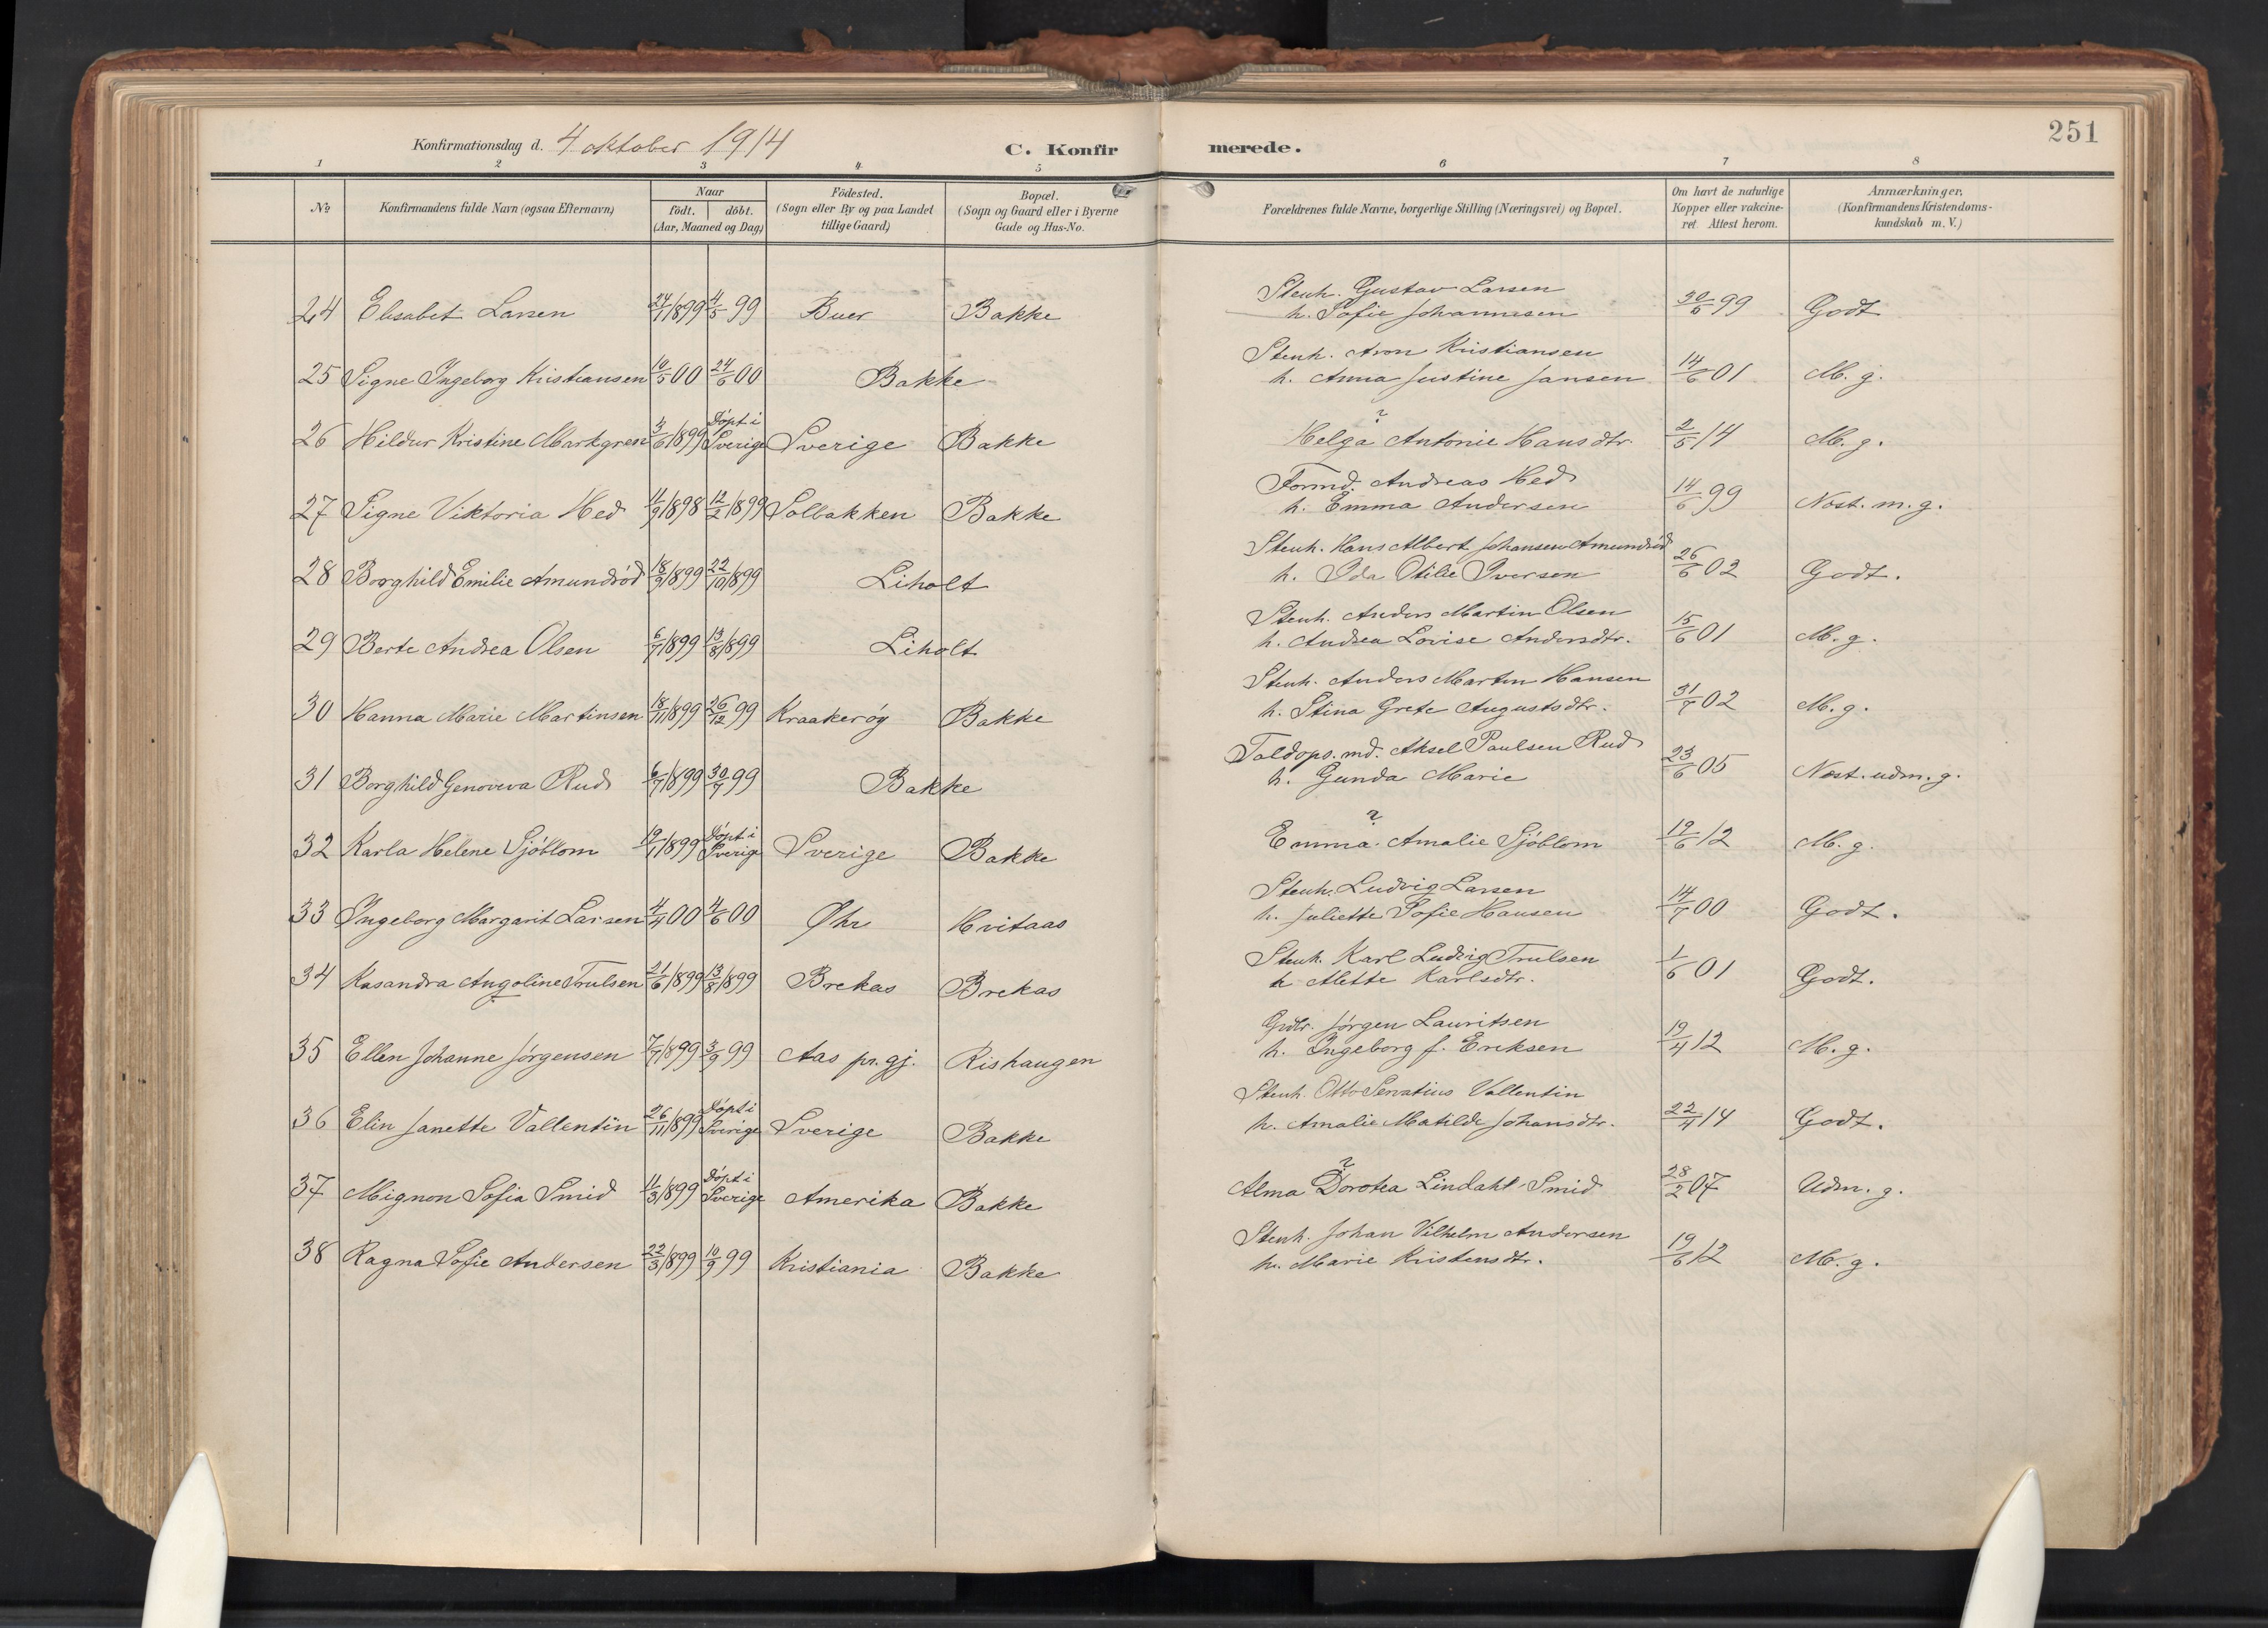 251
Konfirmationsdag d. 4 oktober 1914 C. Konfirmerede.
1 2 3 4 5 6 7 8
No Konfirmandens fulde Navn (ogsaa Efternavn) Naar födt. döbt. (Aar, Maaned og Dag) Födested. (Sogn eller By og paa Landet tillige Gaard) Bopæl. (Sogn og Gaard eller i Byerne Gade og Hus-No. Forældrenes fulde Navne, borgerlige Stilling (Næringsvei) og Bopæl. Om havt de naturlige Kopper eller vakcineret Attest herom. Anmærkninger, (Konfirmandens Kristendomskundskab m. V.)
24 Elisabet Larsen 24/1 1899 4/5 99 Buer Bakke Stenh. Gustav Larsen
h. Sofie Johannesen 30/6 99 Godt
25 Signe Ingeborg Kristiansen 10/5 00 24/6 00 Bakke Stenh. Aron Kristiansen
h. Anna Justine Jansen 14/6 01 M. g.
26 Hildur Kristine Markgren 3/6 1899 Döpt i Sverige Sverige Bakke ?
Helga Antonie Hansdtr. 2/5 14 M. g.
27 Signe Viktoria Hed 11/9 1898 12/2 1899 Solbakken Bakke Formd. Andreas Hed
h. Emma Andersen 14/6 99 Næst. m. g.
28 Borghild Emilie Amundröd 18/9 1899 22/10 1899 Liholt Stenh. Hans Albert Johansen Amundröd
h. Ida Otilie Iversen 26/6 02 Godt.
29 Berte Andrea Olsen 6/7 1899 13/8 1899 Liholt Stenh. Anders Martin Olsen
h. Andrea Lovise Andersdtr. 15/6 01 M. g.
30 Hanna Marie Martinsen 18/11 1899 26/12 99 Kraakeröy Bakke Stenh. Anders Martin Hansen
h. Stina Grete Augustsdtr. 31/7 02 M. g.
31 Borghild Genoveva Rud 6/7 1899 30/7 99 Bakke Toldops. md. Aksel Paulsen Rud
h. Gunda Marie 23/6 05 Næst. udm. g.
32 Karla Helene Sjöblom 19/1 1899 Döpt i Sverige Sverige Bakke ?
Emma Amalie Sjöblom 19/6 12 M. g.
33 Ingeborg Margarit Larsen 4/4 00 4/6 00 Öhr Hvitaas Stenh. Ludvig Larsen
h. Juliette Sofie Hansen 14/7 00 Godt.
34 Kasandra Angoline Trulsen 21/6 1899 13/8 1899 Brekas Brekas Stenh. Karl Ludvig Trulsen
h Mette Karlsdtr. 1/6 01 Godt.
35 Ellen Johanne Jörgensen 7/7 1899 3/9 99 Aas pr.gj. Rishaugen Grdbr. Jörgen Lauritsen
h. Ingeborg f. Eriksen 19/4 12 M. g.
36 Elin Janette Vallentin 26/11 1899 Döpt i Sverige Sverige Bakke Stenh. Otto Servatius Vallentin
h. Amalie Matilde Johansdtr. 22/4 14 Godt.
37 Mignon Sofia Smid 11/3 1899 Döpt i Sverige Amerika Bakke ?
Alma Dorotea Lindahl Smid 28/2 07 Udm. g.
38 Ragna Sofie Andersen 22/3 1899 10/9 99 Kristiania Bakke Stenh. Johan Vilhelm Andersen
h. Marie Kristensdtr. 19/6 12 M. g.